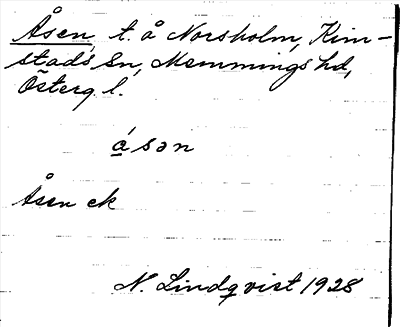 Åsen, t. å Norsholm, Kim-
stads sn, Memmings hd,
Österg l.
ásən
Åsen ek
N. Lindqvist 1928